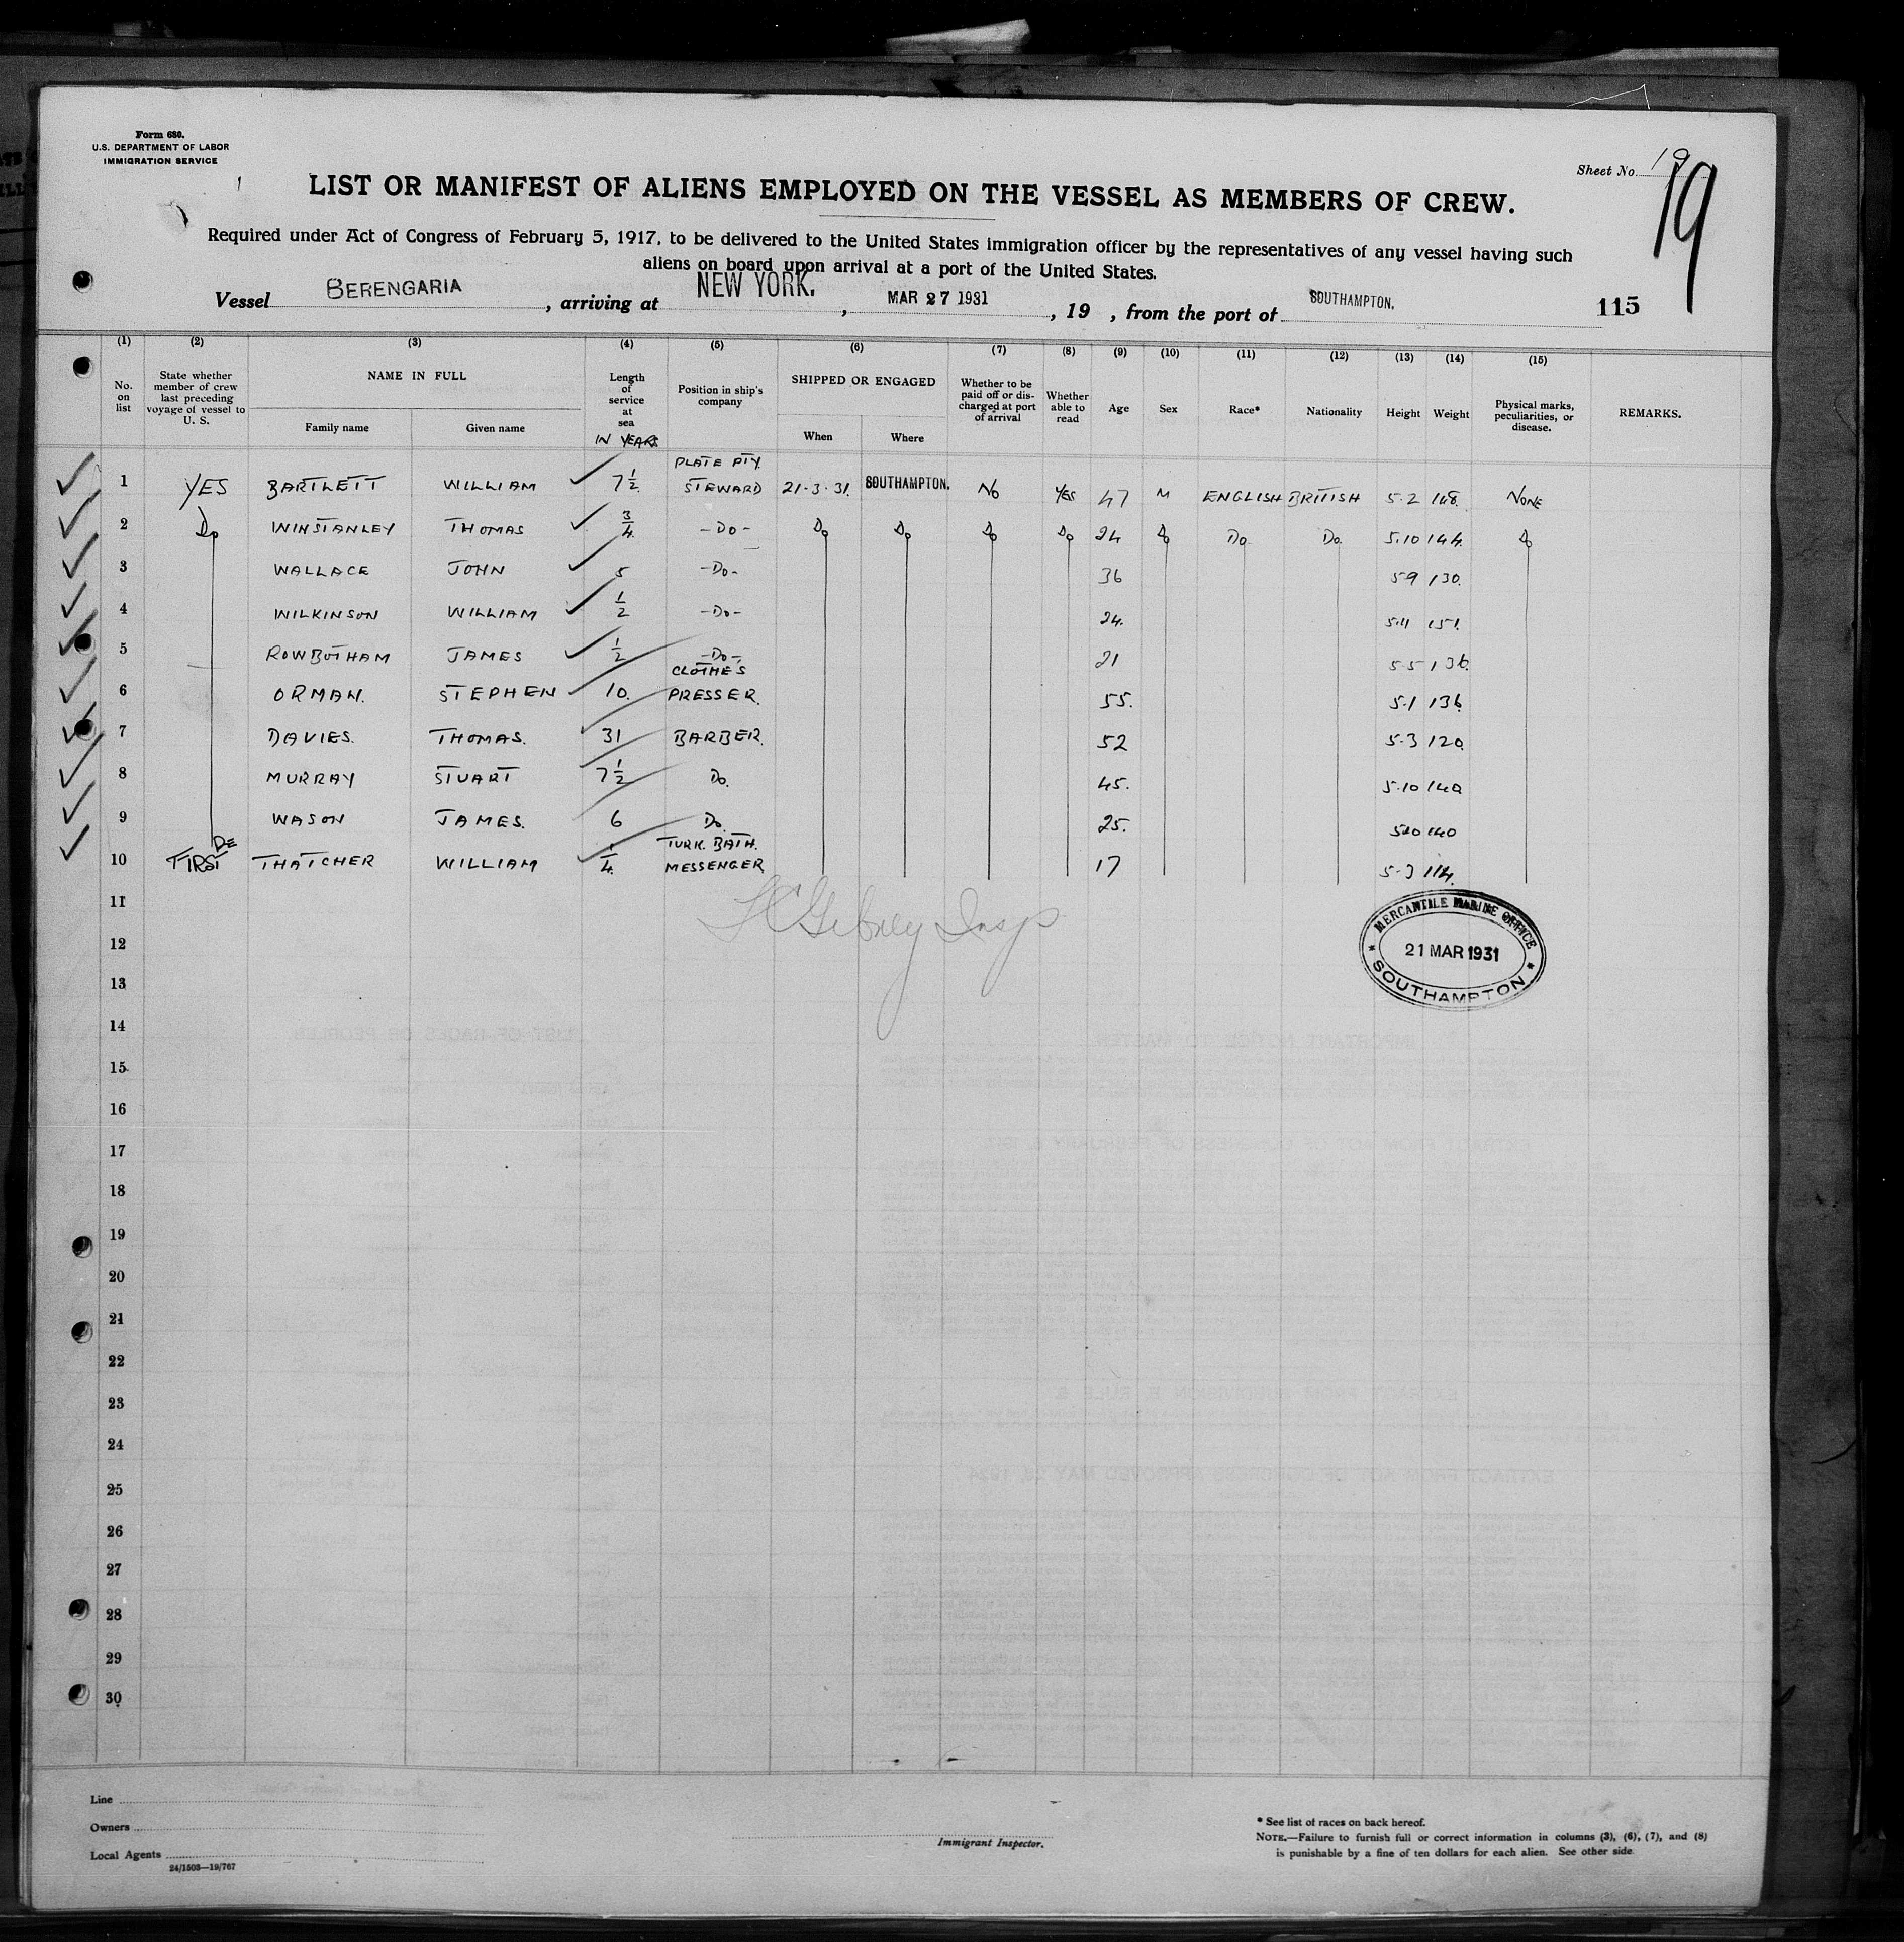 Form 680.
U.S. DEPARTMENT OF LABOR
IMMIGRATION SERVICE
Sheet No. 19
19
LIST OR MANIFEST OF ALIENS EMPLOYED ON THE VESSEL AS MEMBERS OF CREW.
Required under Act of Congress of February 5, 1917, to be delivered to the United States immigration officer by the representatives of any vessel having such
aliens on board upon arrival at a port of the United States.
Vessel BERENGARIA, arriving at NEW YORK., MAR 27 1931, 19 , from the port of SOUTHAMPTON. 115
(1) (2) (3) (4) (5) (6) (7) (8) (9) (10) (11) (12) (13) (14) (15)
No. on list
State whether member of crew last preceding voyage of vessel to U. S.
NAME IN FULL
Family name Given name
Length of service at sea
IN YEARS
Position in ship's company
SHIPPED OR ENGAGED
When Where
Whether to be paid off or discharged at port of arrival
Whether able to read
Age Sex Race* Nationality Height Weight
Physical marks, peculiarities, or disease.
REMARKS.
1 YES BARTLETT WILLIAM 7 1/2 PLATE PTY STEWARD 21-3-31. SOUTHAMPTON. NO YES 47 M ENGLISH BRITISH 5-2 148. NONE
2 Do WINSTANLEY THOMAS 3/4 -DO- Do Do Do Do 24 Do Do Do 5.10 144. Do
3 WALLACE JOHN 5 -DO- 36 5-9 130.
4 WILKINSON WILLIAM 1/2 -DO- 24. 5-11 151.
5 ROWBOTHAM JAMES 1/2 -DO- 21 5-5 136.
6 ORMAN. STEPHEN 10. CLOTHES PRESSER. 55. 5-1 136.
7 DAVIES. THOMAS. 31 BARBER. 52 5-3 120.
8 MURRAY STUART 7 1/2 Do. 45. 5-10 140
9 WASON JAMES. 6 Do. 25. 5-10 140
10 FIRST THATCHER WILLIAM 1/4. TURK. BATH. MESSENGER 17 5-3 114.
11
MERCANTILE MARINE OFFICE
12
21 MAR 1931
13
SOUTHAMPTON
14
15
16
17
18
19
20
21
22
23
24
25
26
27
28
29
30
Line
Owners
Local Agents
24/1503—19/767
Immigrant Inspector.
* See list of races on back hereof.
NOTE.—Failure to furnish full or correct information in columns (3), (6), (7), and (8)
is punishable by a fine of ten dollars for each alien. See other side.